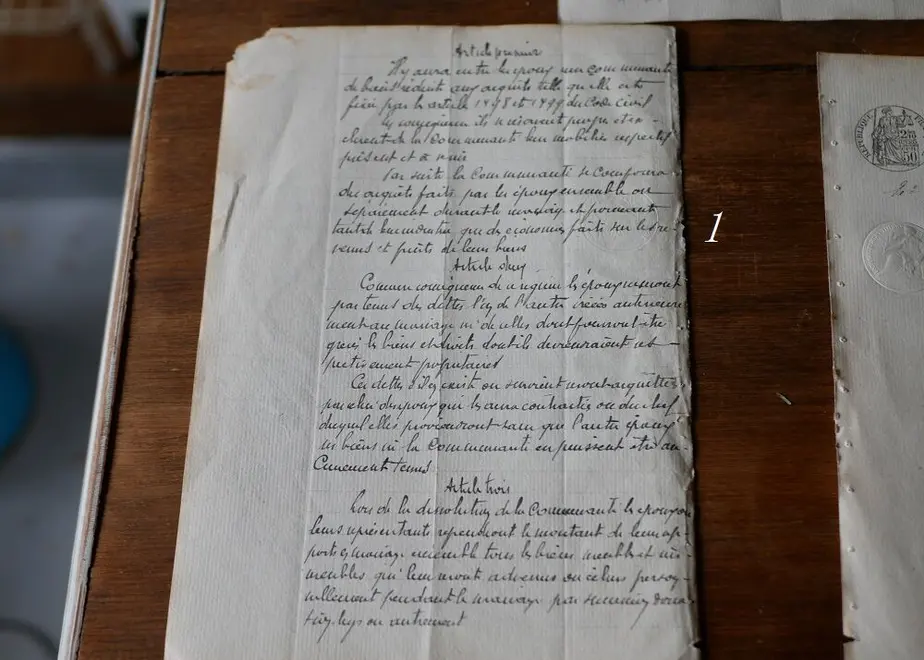 Article premier
Il y aura entre les époux une communauté
de biens réduite aux acquêts telle qu'elle est
fixée par les articles 1498 et 1499 du Code civil
En conséquence ils se réservent propres et ex-
cluent de la Communauté leur mobilier respectif
présent et à venir
Par suite la Communauté se composera
des acquêts faits par les époux ensemble ou
séparément durant le mariage et provenant
tant de leur industrie que des économies faites sur les re-
venus et fruits de leurs biens
Article deux
Comme conséquence de ce régime les époux ne seront
pas tenus des dettes l'un de l'autre créées antérieure
ment au mariage ni de celles dont pourront être
grevés les biens et droits dont ils deviendraient res-
pectivement propriétaires
Ces dettes s'il en existe ou survient seront acquittées
par celui des époux qui les aura contractées ou du chef
duquel elles proviendront sans que l'autre époux
ses biens ni la Communauté en puissent être au-
cunement tenus
Article trois
Lors de la dissolution de la Communauté les époux ou
leurs représentants reprendront le montant de leurs ap-
ports en mariage ensemble tous les biens meubles et im-
meubles qui leur seront advenus ou échus person-
nellement pendant le mariage par succession dona
tion legs ou autrement
1
RÉPUBLIQUE